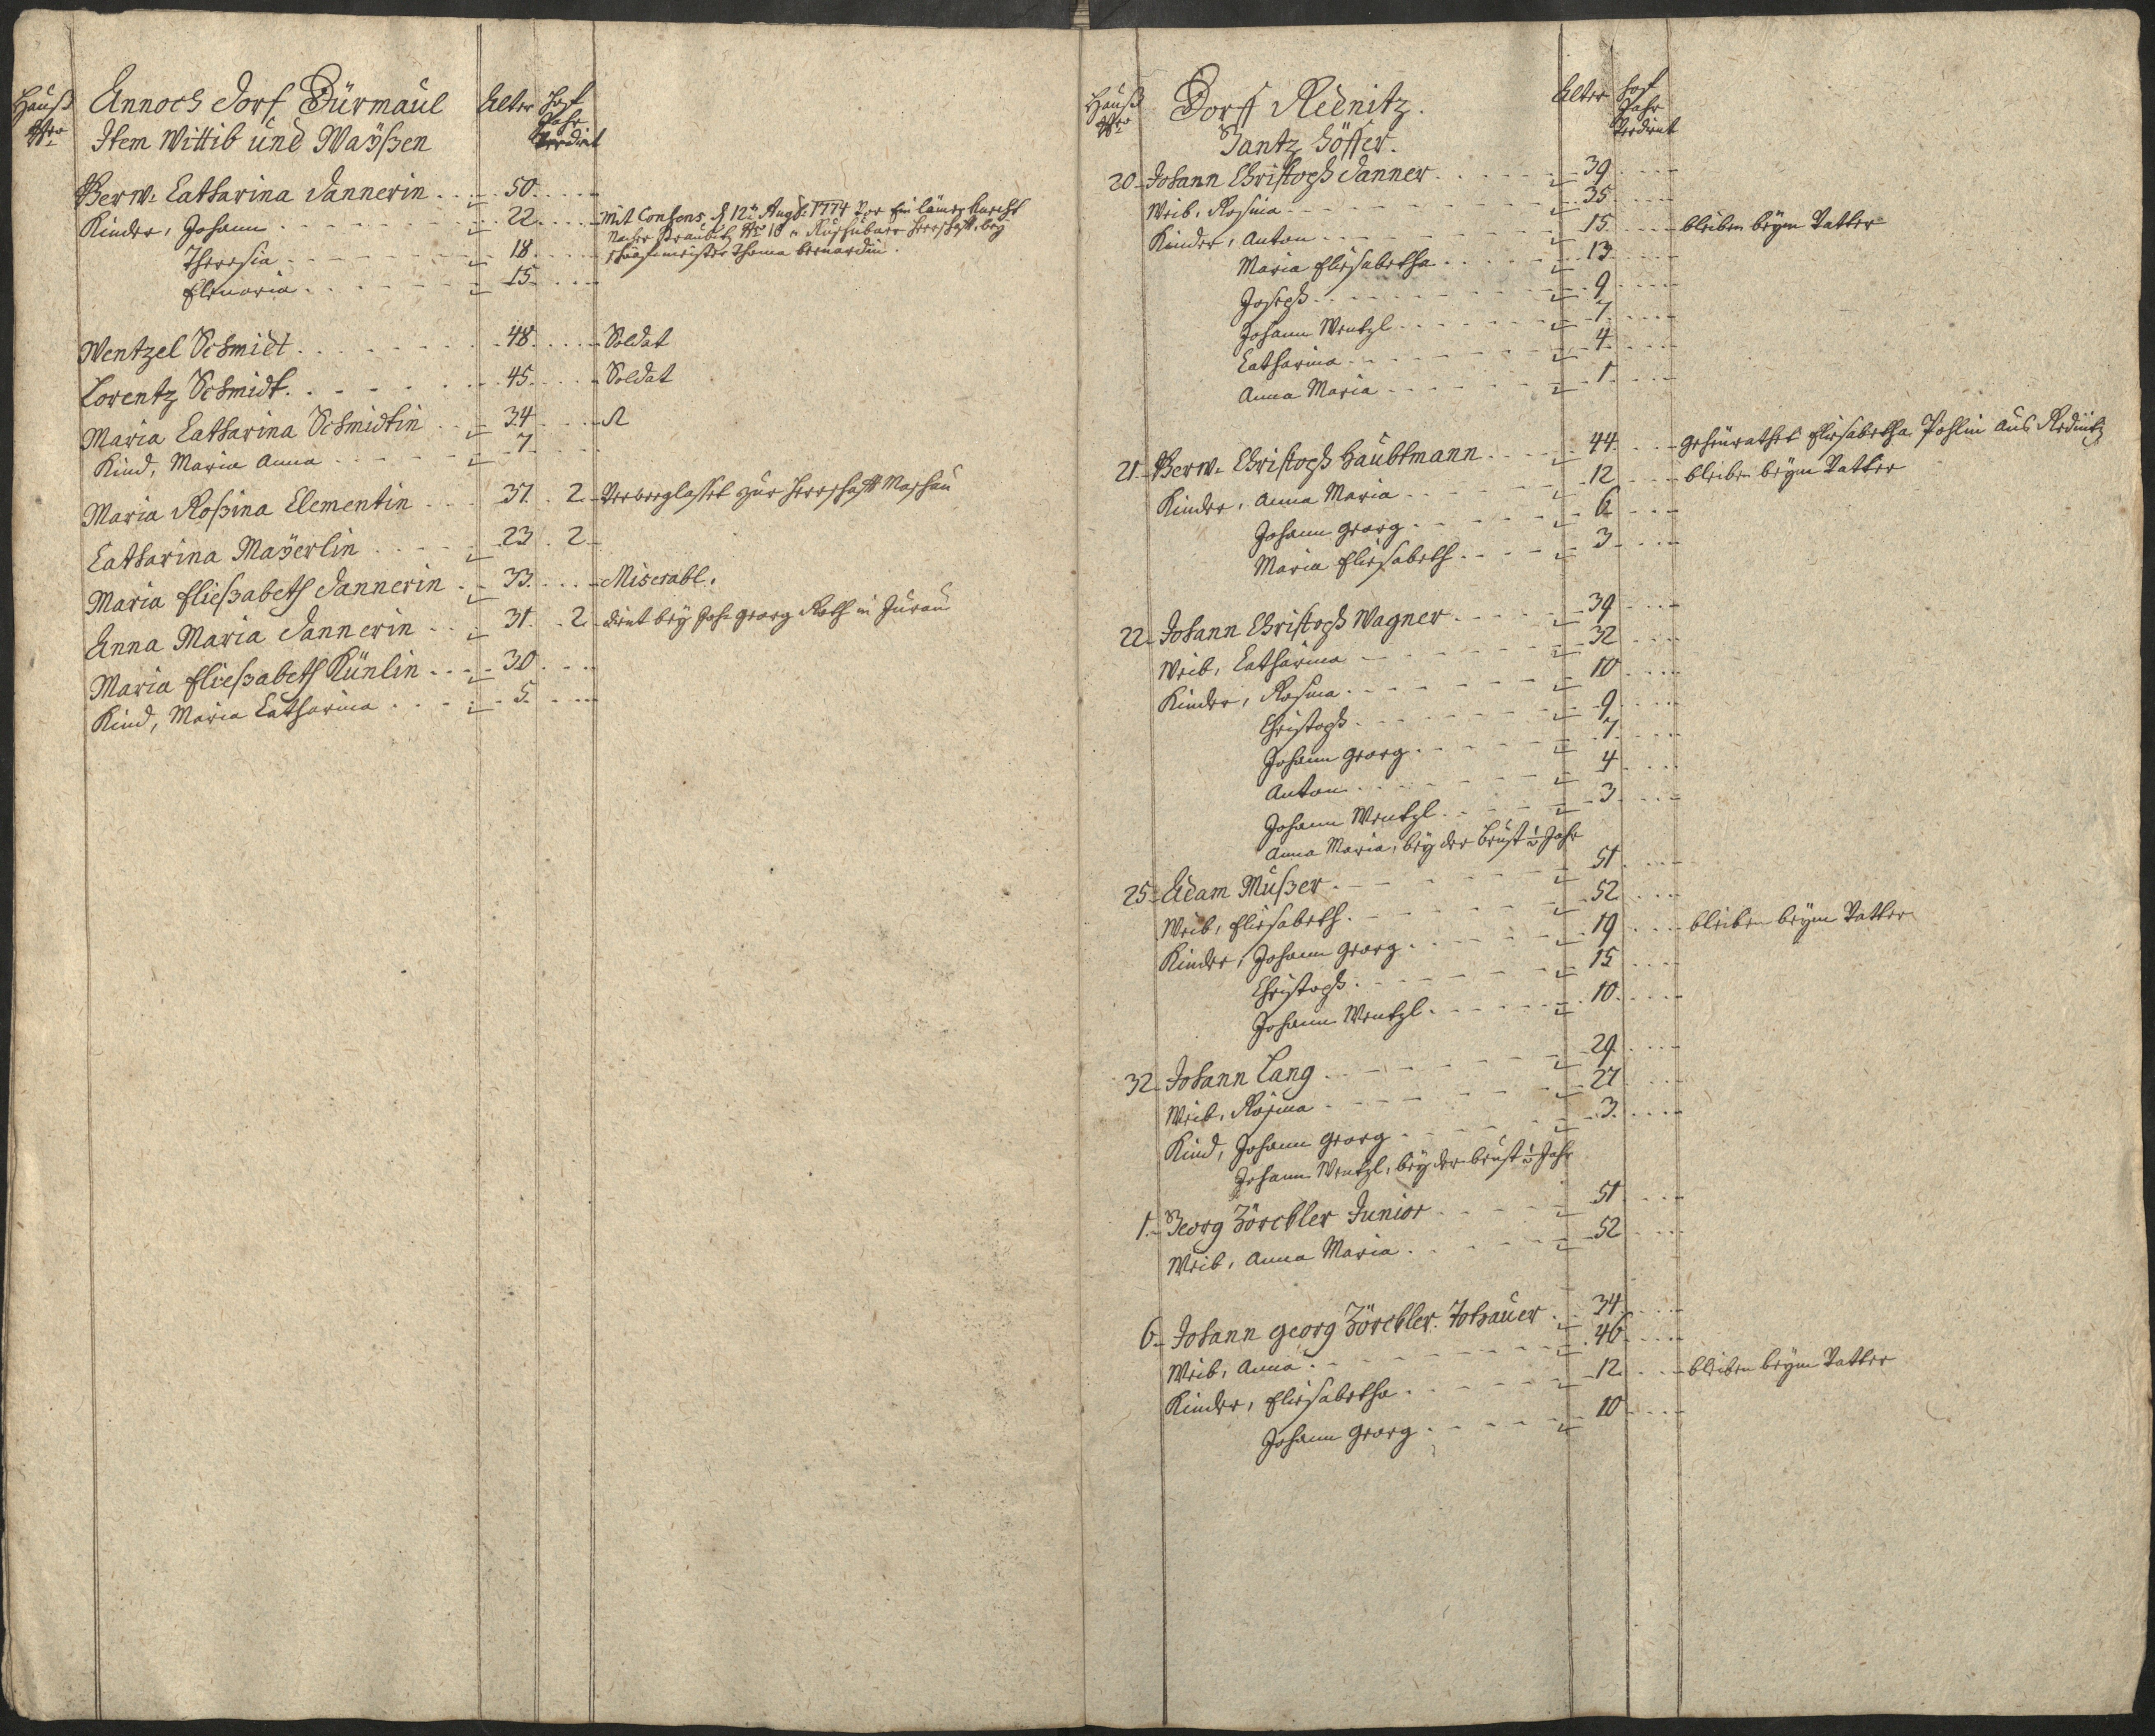 Hauß Nro
Annoch Dorf Dürmaul
Item Wittib und Waÿßen
Alter
Hof Jahr Verdient
Verw. Catharina Dannerin 50
Kinder, Johann 22 Mit Consens d 12t Augst 1774 Vor Ein
Theresia 18
Elenoria 15
Wentzel Schmidt 48 Soldat
Lorentz Schmidt 45 Soldat
Maria Catharina Schmidtin 34
Kind, Maria Anna 7
Maria Roßina Clementin 37 2 zur Herrschaft
Catharina Maÿerlin 23 2
Maria Eließabeth Dannerin 33 Miserabl.
Anna Maria Dannerin 31 2 dient bey Joh Georg Roth in
Maria Eließabeth Künlin 30
Kind, Maria Catharina 5
Hauß Nro
Dorff Rednitz.
Gantz Höffer.
Alter
Hof Jahr Verdient
20 Johann Christoph Danner 39
Weib, Rosina 35
Kinder, Anton 15 bleiben beym Vatter
Maria Eliesabetha 13
Joseph 9
Johann Wentzl 7
Catharina 4
Anna Maria 1
21 Verw. Christoph Haubtmann 44 geheurathet Eliesabetha Pohlin aus Rednitz
Kinder, Anna Maria 12 bleiben beym Vatter
Johann Georg 6
Maria Eliesabeth 3
22 Johann Christoph Wagner 39
Weib, Catharina 32
Kinder, Rosina 10
Christoph 9
Johann Georg 7
Anton 4
Johann Wentzl 3
Anna Maria, bey der Brust ½ Jahr
25 Adam Mußer 51
Weib, Eliesabeth 52
Kinder, Johann Georg 19 bleiben beym Vatter
Christoph 15
Johann Wentzl 10
32 Johann Lang 29
Weib, Rosina 27
Kind, Johann Georg 3
Johann Wentzl, bey der Brust ½ Jahr
1 Georg Zörckler Junior 51
Weib, Anna Maria 52
6 Johann Georg Zörckler 34
Weib, Anna 46
Kinder, Eliesabetha 12 bleiben beym Vatter
Johann Georg 10